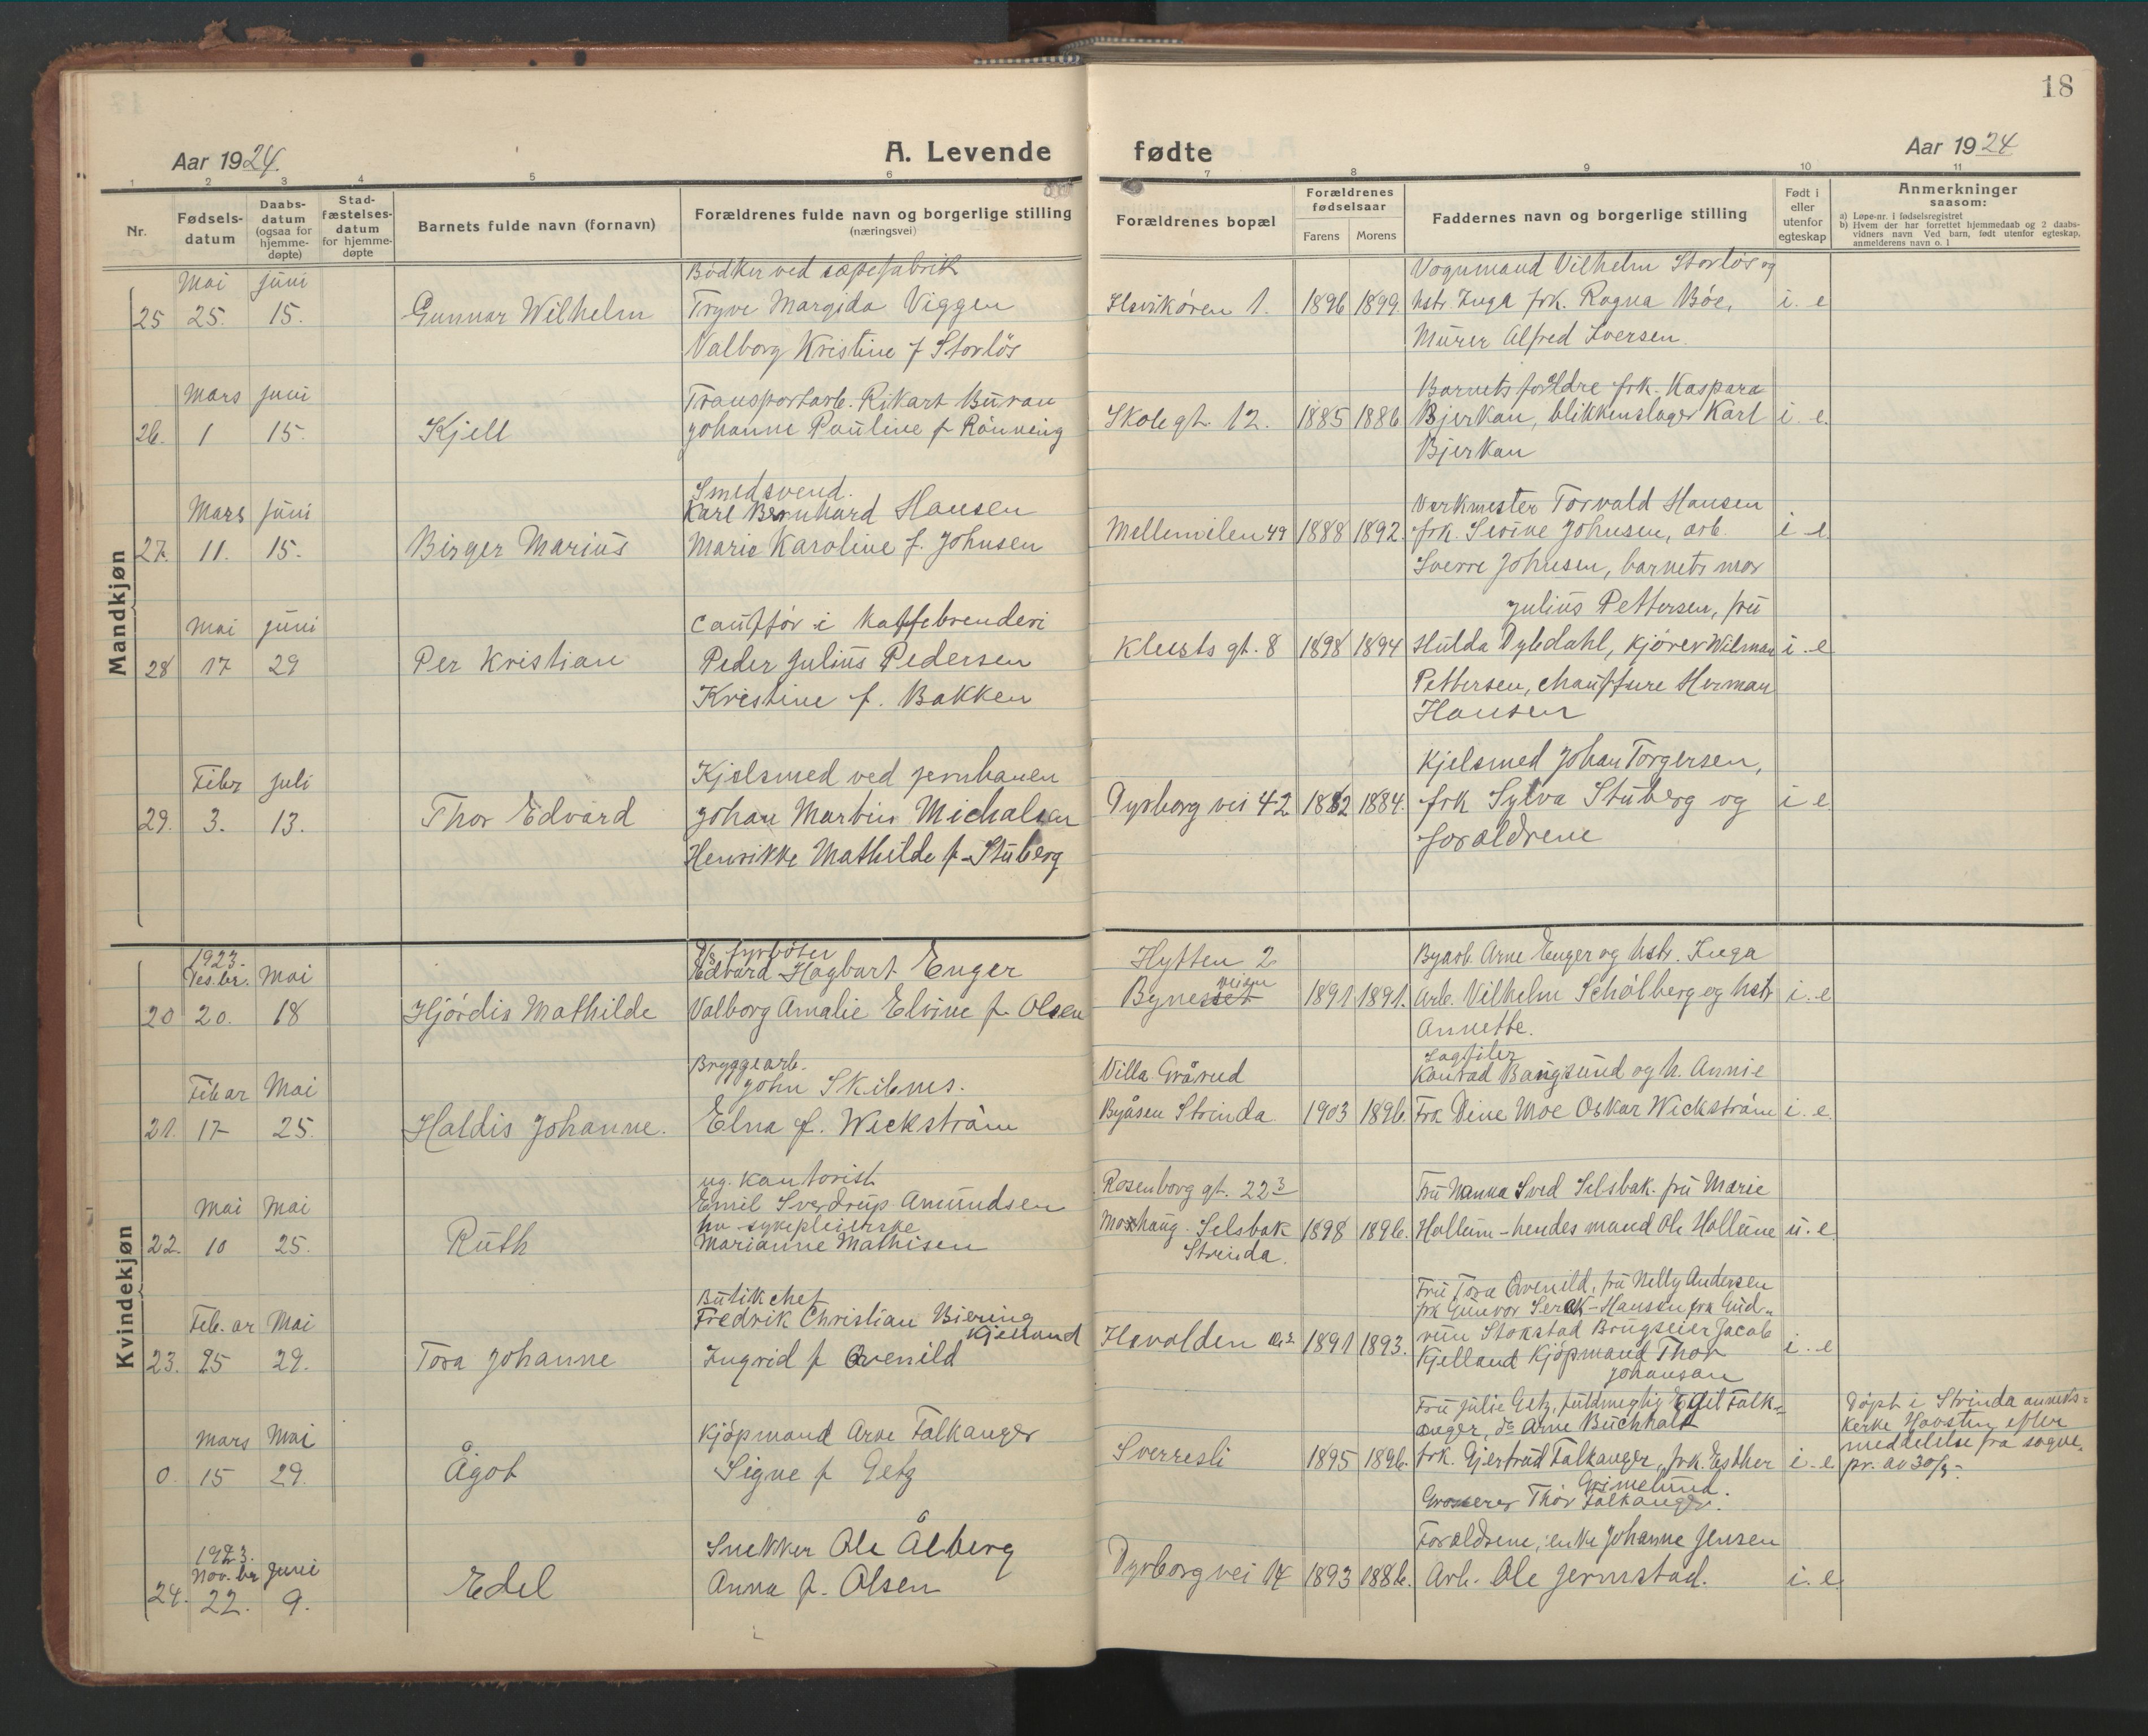 18
Aar 1924.
A. Levende
fødte
Aar 1924
1 2 3 4 5 6 7 8 9 10 11
Nr.
Fødsels-
datum
Daabs-
datum
(ogsaa for
hjemme-
døpte)
Stad-
fæstelses-
datum
for hjemme-
døpte
Barnets fulde navn (fornavn)
Forældrenes fulde navn og borgerlige stilling
(næringsvei)
Forældrenes bopæl
Forældrenes
fødselsaar
Farens Morens
Faddernes navn og borgerlige stilling
Født i
eller
utenfor
egteskap
Anmerkninger
saasom:
a) Løpe-nr. i fødselsregistret
b) Hvem der har forrettet hjemmedaab og 2 daabs-
vidners navn Ved barn, født utenfor egteskap,
anmelderens navn o. l
Mandkjøn
Mai juni
25 25. 15.
Gunnar Wilhelm
Bødker ved sæpefabrik
Trygve Margido Viggen
Valborg Kristine f Storløs
Ilsvikøren 1.
1896 1899
Vognmand Vilhelm Storløs og
hstr. Inga frk. Ragna Bøe,
Murer Alfred Iversen.
i. e
Mars juni
26. 1 15.
Kjell
Transportarb. Rikart Buran
Johanne Pauline f Rønning
Skolegt. 12.
1885 1886
Barnets foreldre frk. Kaspara
Bjerkan, blikkenslager Karl
Bjerkan
i. e.
Mars juni
27. 11. 15.
Birger Marius
Smedsvend.
Karl Bernhard Hansen
Marie Karoline f. Johnsen
Mellemilen 49
1888 1892.
Verkmester Torvald Hansen
frk. Sevine Johnsen, arb.
Sverre Johnsen, barnets mor
i e.
Mai juni
28 17 29
Per Kristian
i Kaffebrenderi
Peder Julius Pedersen
Kristine f. Bakken
gt. 8
1898 1894
Julius Pettersen, fru
Hulda Dybdahl, kjører Wilman
Pettersen, chauffure Herman
Hansen
i. e
Febr juli
29. 3. 13.
Thor Edvard
Kjelsmed ved jernbanen
Johan Martin Michalsen
Henrikke Mathilde f. Stuberg
Dyrborg vei 42
1882 1884.
Kjelsmed Johan Torgersen,
frk Sylva Stuberg og
foreldrene
i e.
Kvindekjøn
1923.
Des.br. Mai
20 20. 18
Hjørdis Mathilde
D/s fyrbøter
Edvard Hagbart Enger
Valborg Amalie Elvine f. Olsen
Hytten 2
Bynesset veien
1891 1891.
Byarb. Arne Enger og hstr. Inga
Arb. Vilhelm Schølberg og hstr
Annette.
i. e
Feb ar Mai
21. 17 25.
Haldis Johanne.
Bryggearb.
John Skibnes.
Elna f. Wickstrøm
Villa Grårud
Byåsen Strinda
1903 1896.
Sagfiler
Konrad Bangsund og h. Annie
Frk Dine Moe Oskar Wickstrøm
i. e.
Mai Mai
22. 10 25.
Ruth
ug. kontorist
Emil Sverdrup Amundsen
hu - sykepleierske
Marianne Mathisen
Rosenborg gt. 22 3
Moxhaug - Selsbak
Strinda.
1898 1896.
Fru Nanna Sved Selsbak. fru Marie
Hollum - hendes mand Ole Hollum
u. e.
Feb. ar Mai
23. 25 29.
Tora Johanne
Butikchef
Fredrik Christian Biering
Kjelland
Ingrid f Qvenild
Ilsvolden
1891 1893.
Fru Tora Qvenild, fru Nelly Andersen
frk Gunvor -Hansen frk Gud-
run Stokstad Brugseier Jacob
Kjelland Kjøpmand Thor
Johansen
i. e
Mars Mai
0. 15 29.
Ågot
Kjøpmand Arve Falkanger
Signe f Getz
Sverresli
1895 1896.
Fru Julie Getz, fuldmegtig Egil Falk-
anger, do Arne Buchholt
frk. Gjertrud Falkanger, frk. Esther
Grimelund.
Grosserer Thor Falkanger.
i. e
Døpt i Strinda annex-
kerke Havstin efter
meddelelse fra sogne
pr. av 30/5.
1923.
Nov. br Juni
24. 22. 9.
Edel
Snekker Ole Ålberg
Anna f. Olsen
Dyrborg vei 14
1893 1886.
Foreldrene, enke Johanne Jensen
Arb. Ole Jermstad.
i. e.